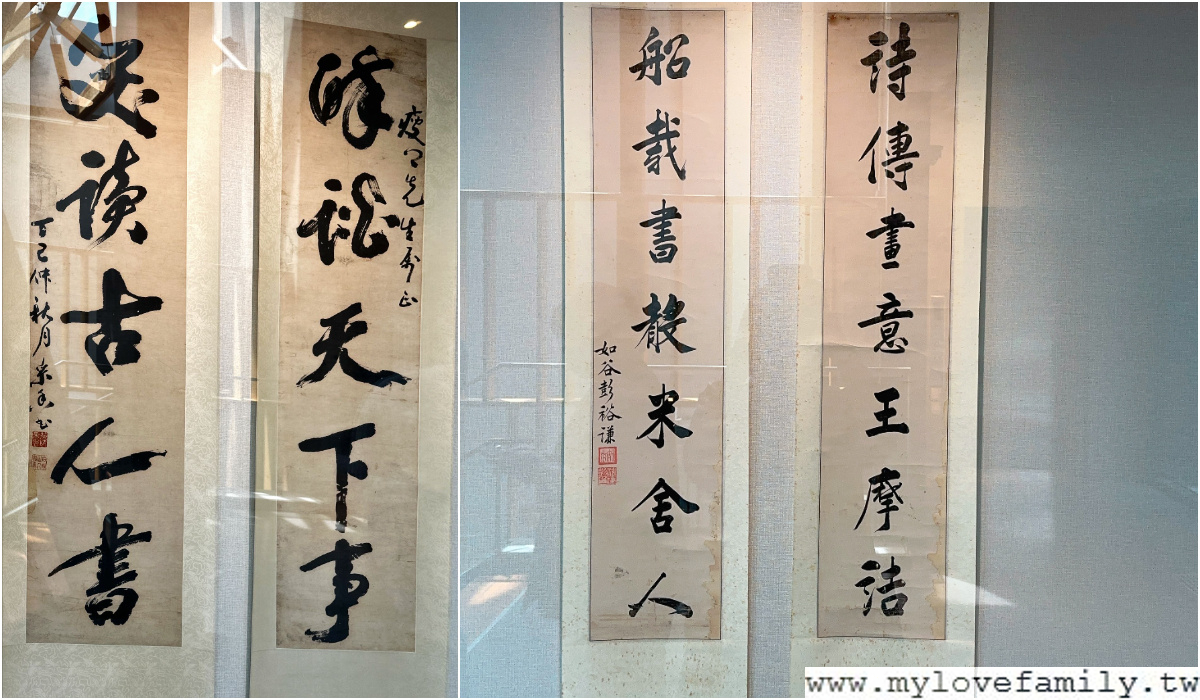 天下事
瘦先生屬正
笑讀古人書
丁巳仲秋月
詩傳畫意王摩詰
船載書聲米舍人
如谷彭裕謙
www.mylovefamily.tw